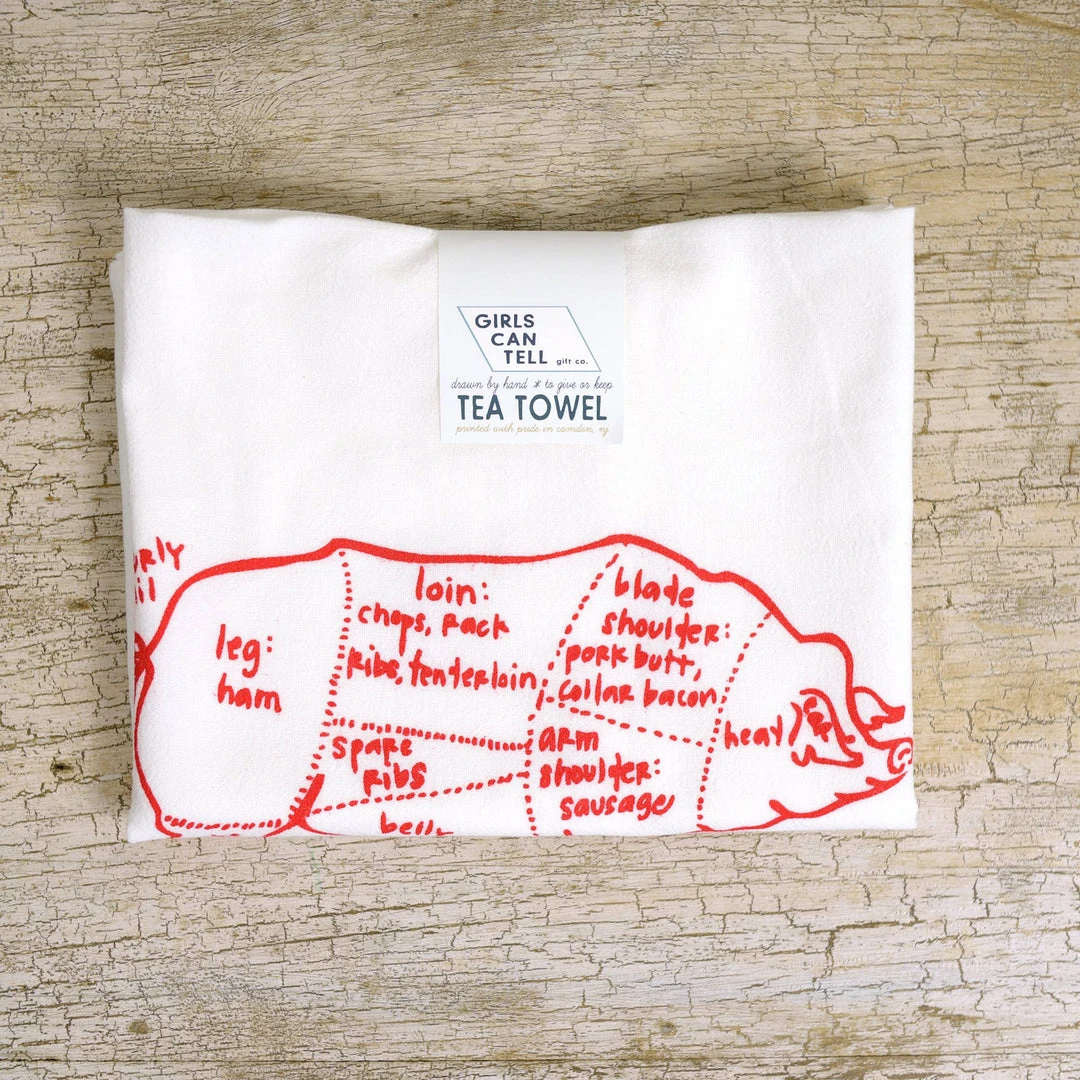 GIRLS
CAN
TELL gift co.
drawn by hand * to give or keep
TEA TOWEL
printed with pride in camden, nj
leg:
ham
loin:
chops, rack
ribs, tenderloin
spare
ribs
belly
blade
shoulder:
pork butt,
collar bacon
arm
shoulder:
sausage
head